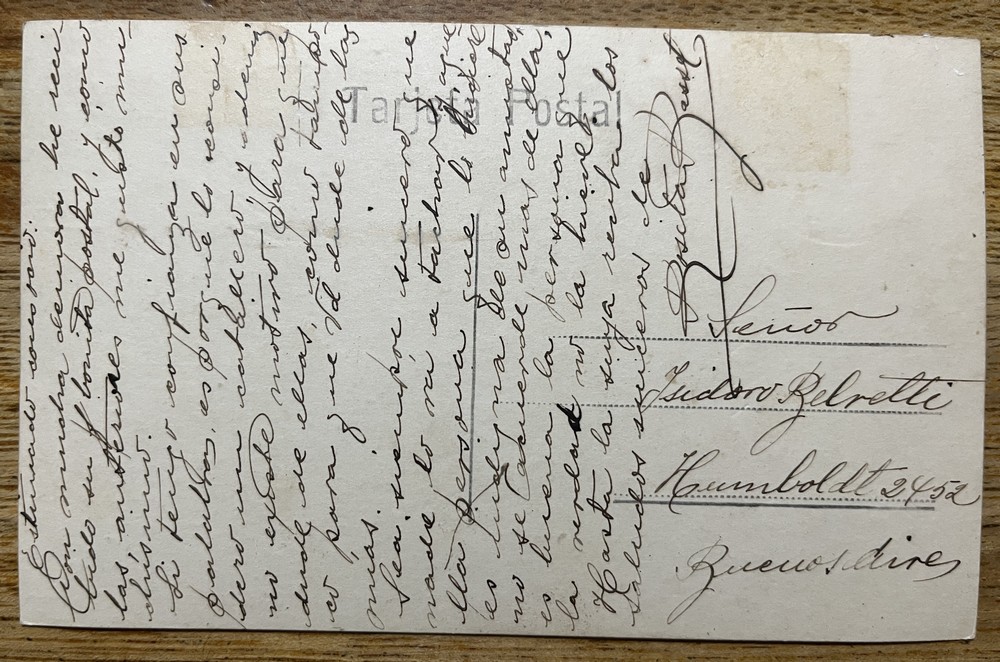 Tarjeta Postal
Estimado conosado.
Con mucha demora he reci
bido su bonita postal, y como
las anteriores me gustó mu
chísimo.
Si tengo confianza en sus
palabras, es porque lo consi
dero un caballero, además
no existe motivo para que
dude de ellas, como tampo
co para que Vd dude de las
mias.
Sea siempre sincero que
nade lo vá a tachar y aque
lla persona que lo hiciese
es indigna de su amistad,
no se acuerde mas de ella,
es buena la persona que
la verdad no la hiere.
Hasta la suya reciba los
saludos sinceros de
Rosita Basset
Señor
Isidoro Belretti
Humboldt 2452
Buenos Aires